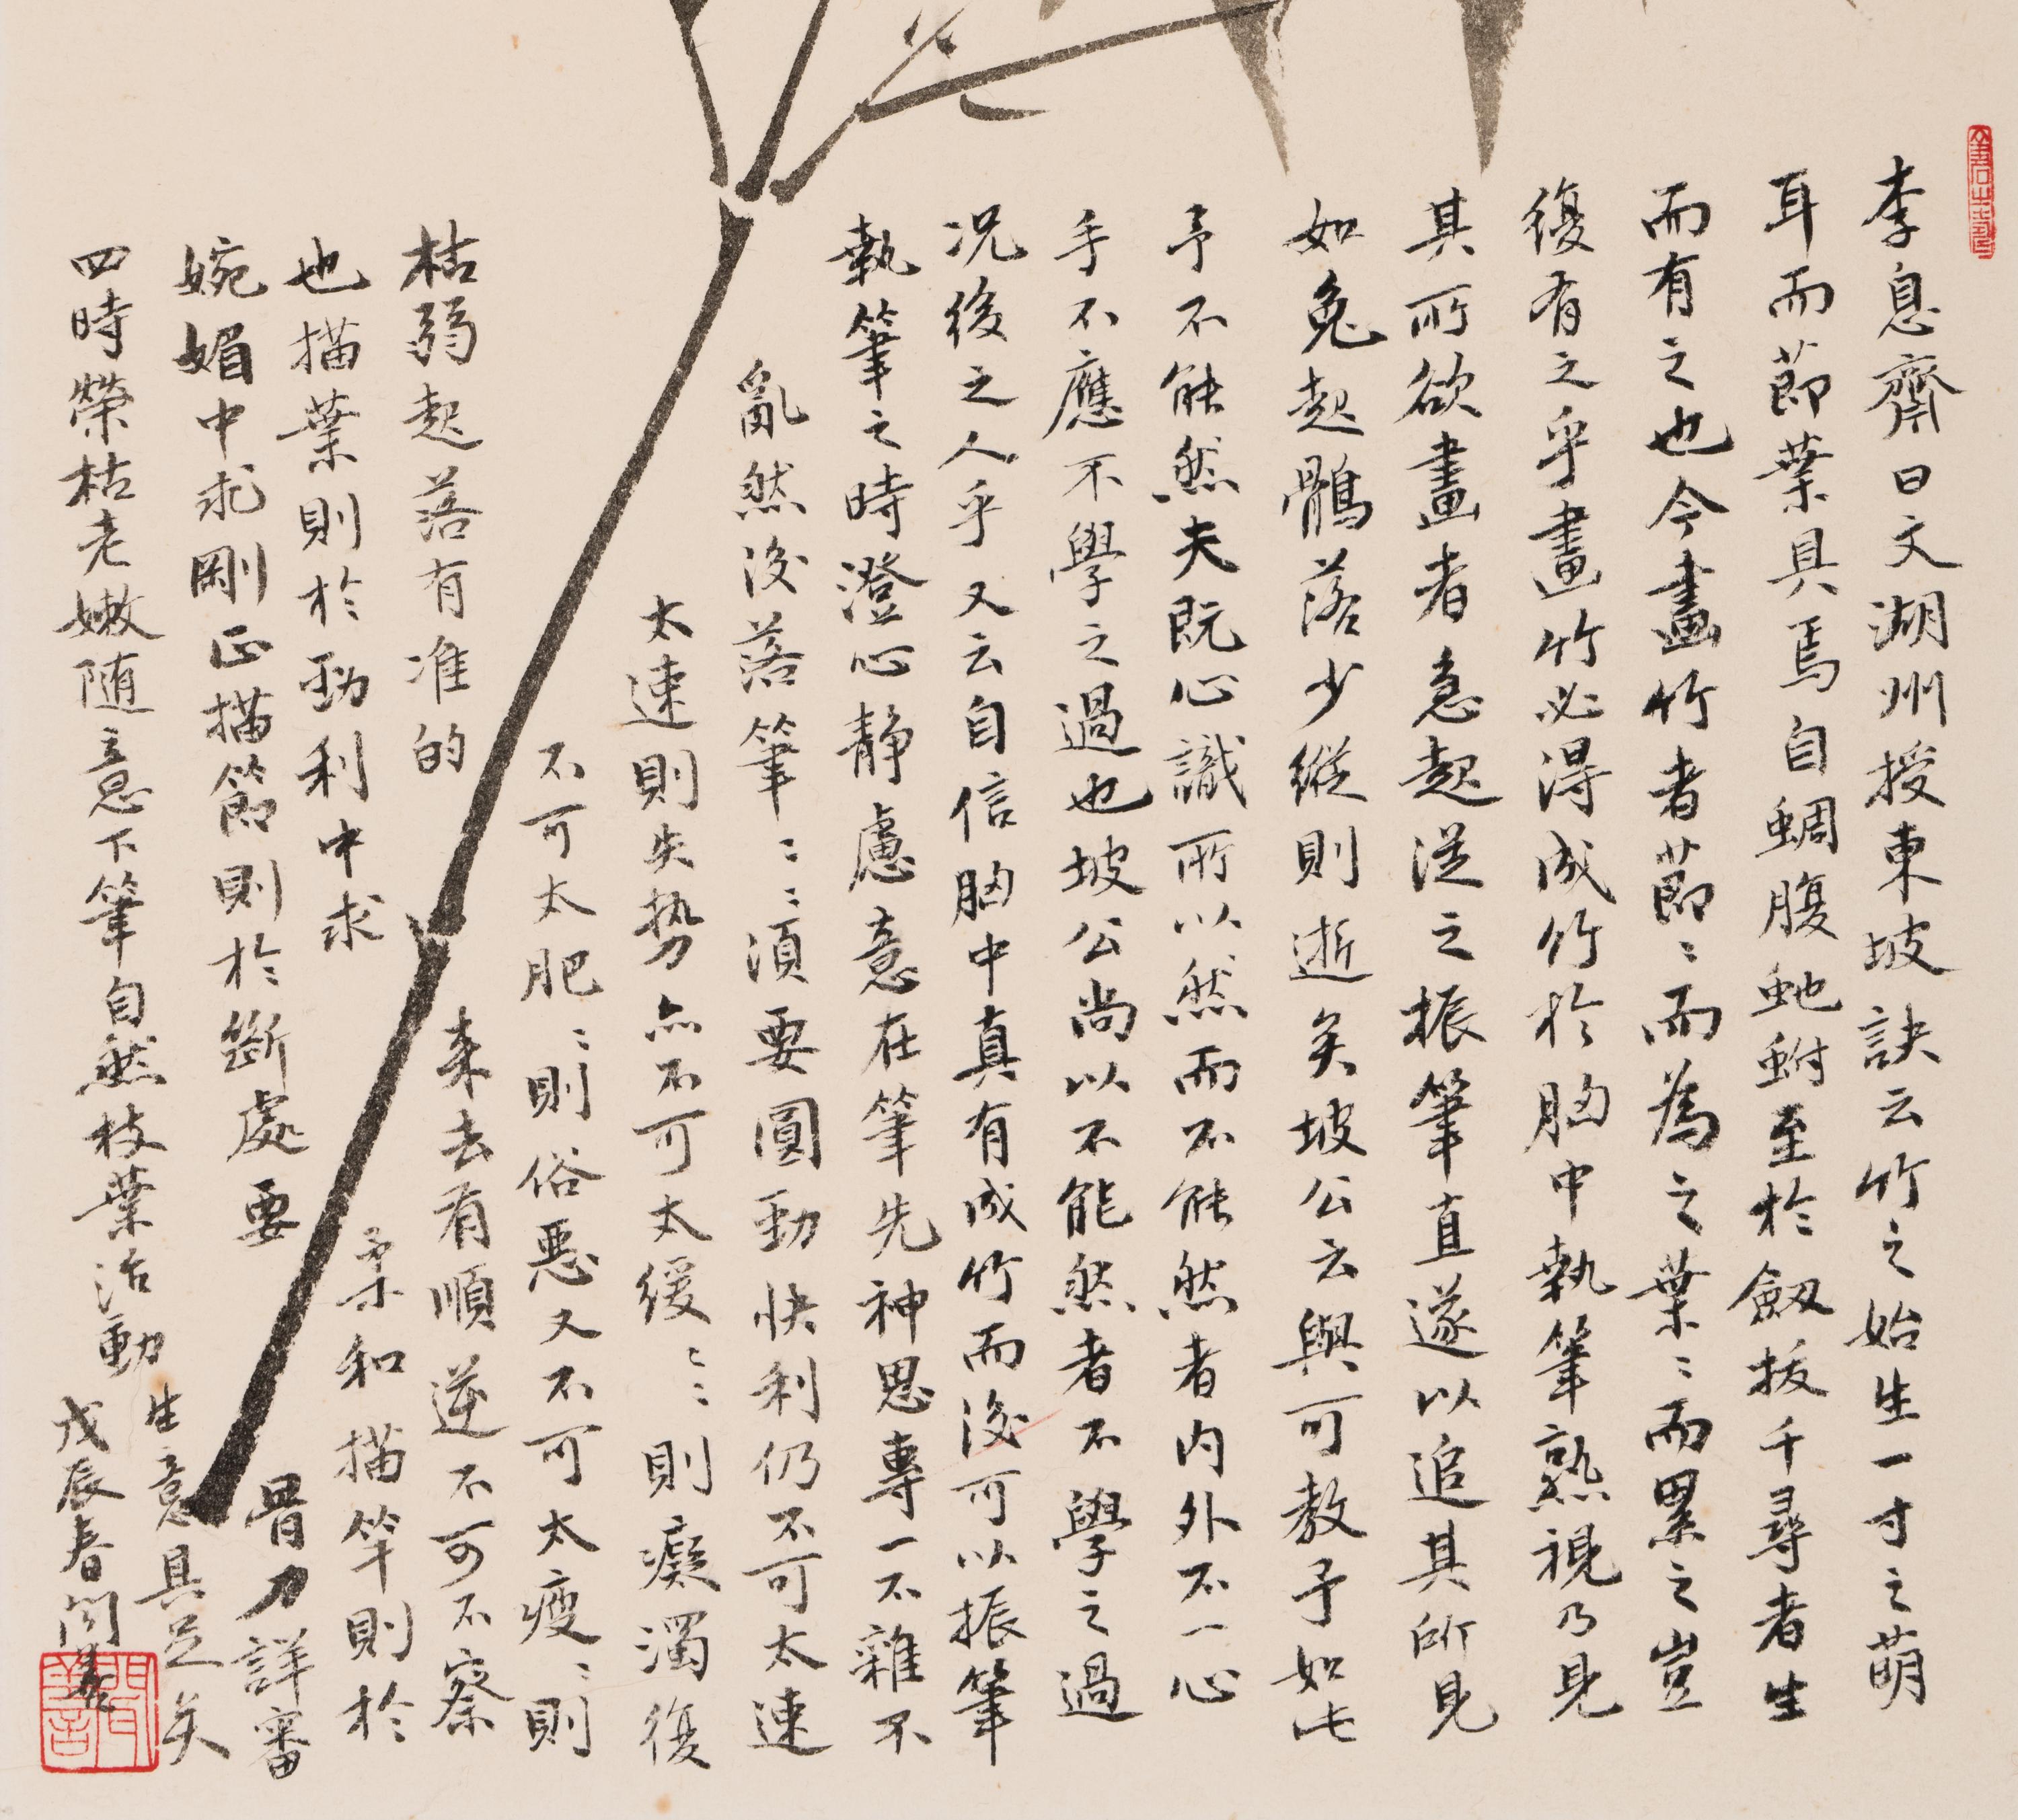 李息齋曰文湖州授東坡訣云竹之始生一寸之萌
耳而莭葉具焉自蜩腹虵蚹至於劔拔千尋者生
而有之也今畫竹者莭〻而為之葉〻而累之豈
復有之乎畫竹必得成竹於胸中執筆熟視乃見
其所欲畫者急起從之振筆直遂以追其所見
如兔起鶻落少縱則逝矣坡公云與可教予如此
予不能然夫既心識所以然而不能然者內外不一心
手不應不學之過也坡公尚以不能然者不學之過
况後之人乎又云自信胸中真有成竹而後可以振筆
執筆之時澄心静慮意在筆先神思專一不雜不
亂然後落筆〻〻須要圓勁快利仍不可太速
太速則失勢亦不可太缓〻〻則癡濁復
不可太肥〻則俗惡又不可太瘦〻則
枯弱起落有准的
来去有順逆不可不察
也描葉則於勁利中求
柔和描竿則於
婉媚中求剛正描節則於斷處要
骨力詳審
四時榮枯老嫩随意下筆自然枝葉活動
生意具足矣
戊辰春閒善